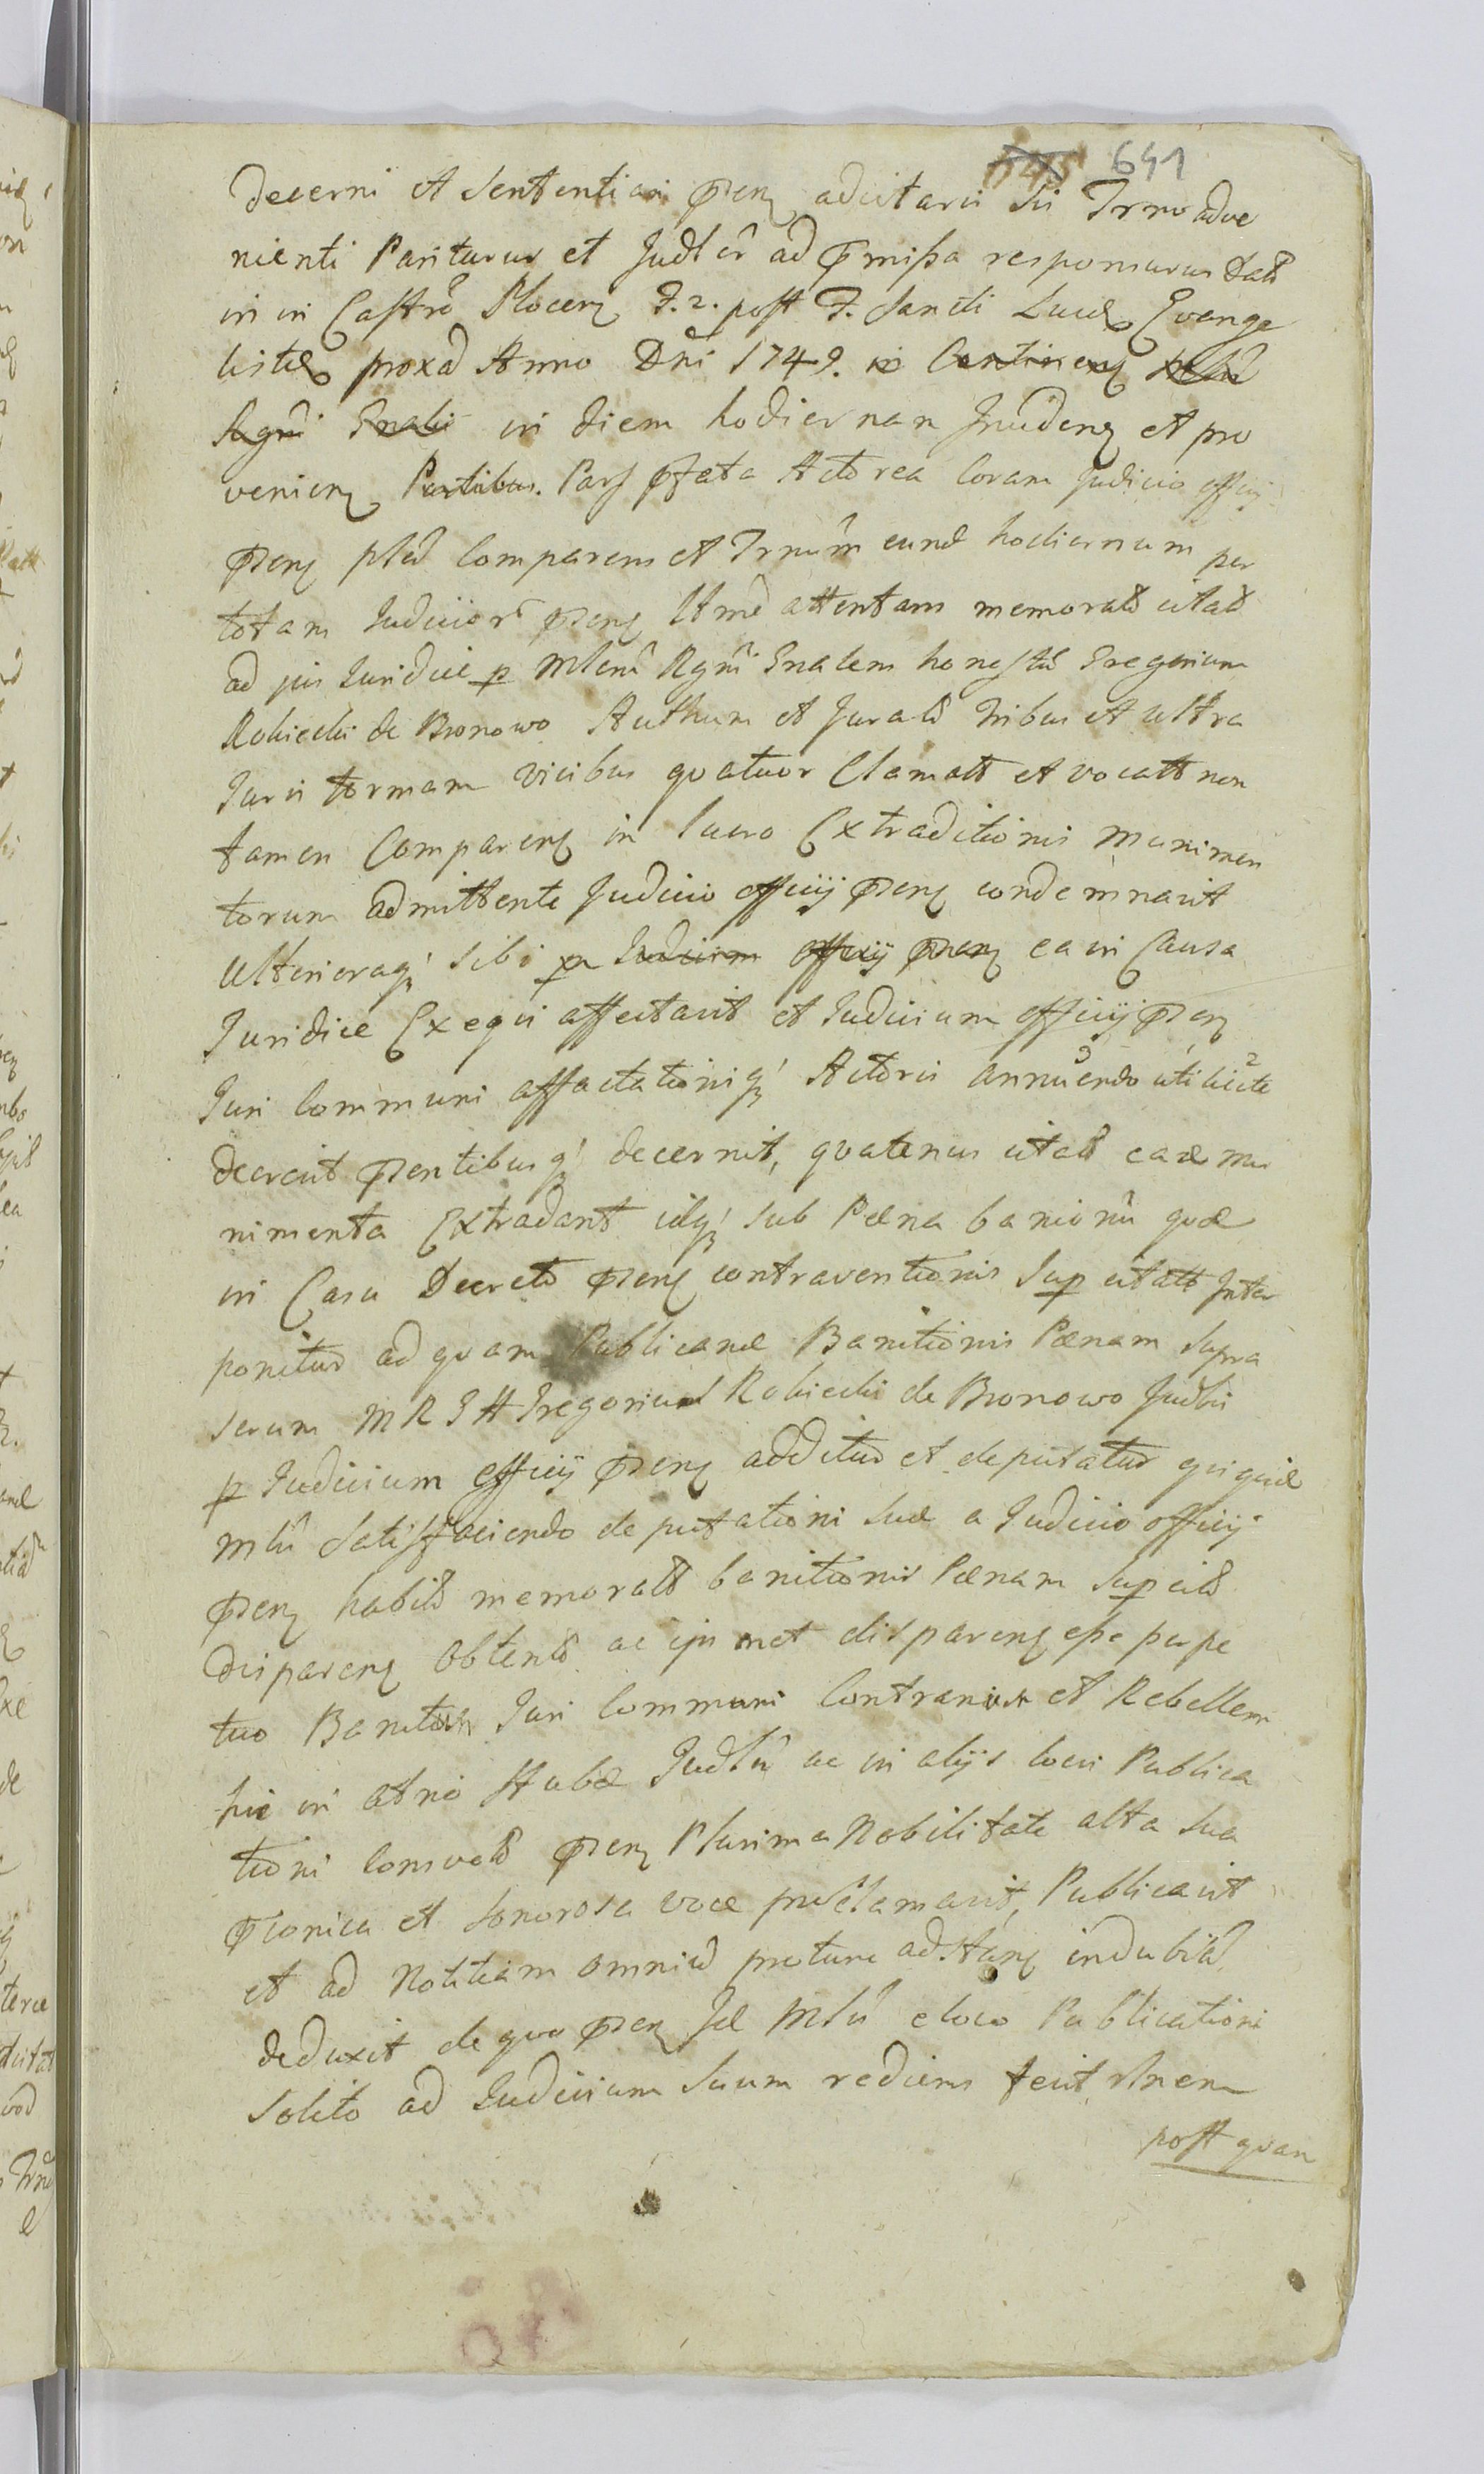 645 641
decerni et Sententiari Pñeñ adcitari Sis Trmo adve
nienti Pariturus et Judlr̂ ad Pmissa responsurus Dat
in in Castro Plocen F. 2. post F. Sancti Lucæ Evange
listæ proxa Anno Dñi 1749. in Continen
Regni Gnalis in diem hodiernam Inciden et pro
venien Partibus. Pars Pfata Actorea Coram Judicio officij
Pñeñ pltr Comparens et Trnum eund hodiernum per
totam Judicior Pñeñ Itme attentans memorat citat
ad jus Juridice p Mlem Rgni Gnalem honestu Gregorium
Robiecki de Bronowo Authum et Jurat tribus et ultra
Juris formam vicibus quatuor Clamatt et vocatt non
tamen Comparen in lucro Extraditionis munimen
torum admittente Judicio officij Pñeñ condemnavit
Ulterioraq sibi per Judicium officij Pñeñ ea in Causa
Juridice Exequi affectavit et Judicium officij Pñeñ
Juri communi affectationiq Actoris annuendo uti licite
decrevit Pñentibusq decernit, quatenus citatt eade mu
nimenta Extradant idq sub Pæna banionu quæ
in Casu Decreto Pñeñ contraventionis Sup citatt Inter
ponitur ad quam Publicandæ Banitionis Pænam supra
serum M R G H Gregorius Robiecki de Bronowo Judlis
p Judicium officij Pñeñ additur et deputatur qui quide
mlis Satisfaciendo deputationi suæ a Judicio officij
Pñeñ habit memorat banitionis Pænam Sup cit
disparen Obtent ac ijsmet disparen esse perpe
tuo Banitos Juri Communi Contrarios et Rebellem
hic in atrio Stubæ Judlis ac in alijs locis Publica
tioni Consvet Pñeñ Plurima Nobilitate alta sua
Pconica et Sonorosa voce proclamavit, Publicavit
et ad Notitiam omniu protunc adstan indubitt
deduxit de quo Pñeñ Id Mlis e loco Publicationi
solito ad Judicium suum rediens fecit rlnem
post quam